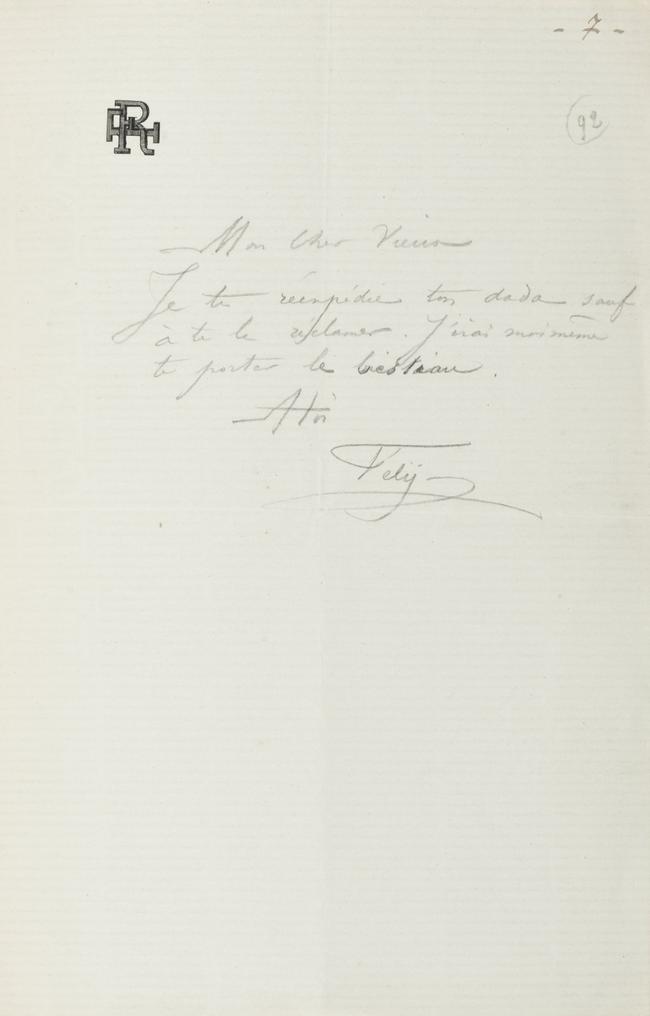 - 7 -
92
Mon Cher Vieux
Je te réexpédie ton dada sauf
à te le réclamer. J'irai moi même
te porter le bestiau.
A toi
Fély